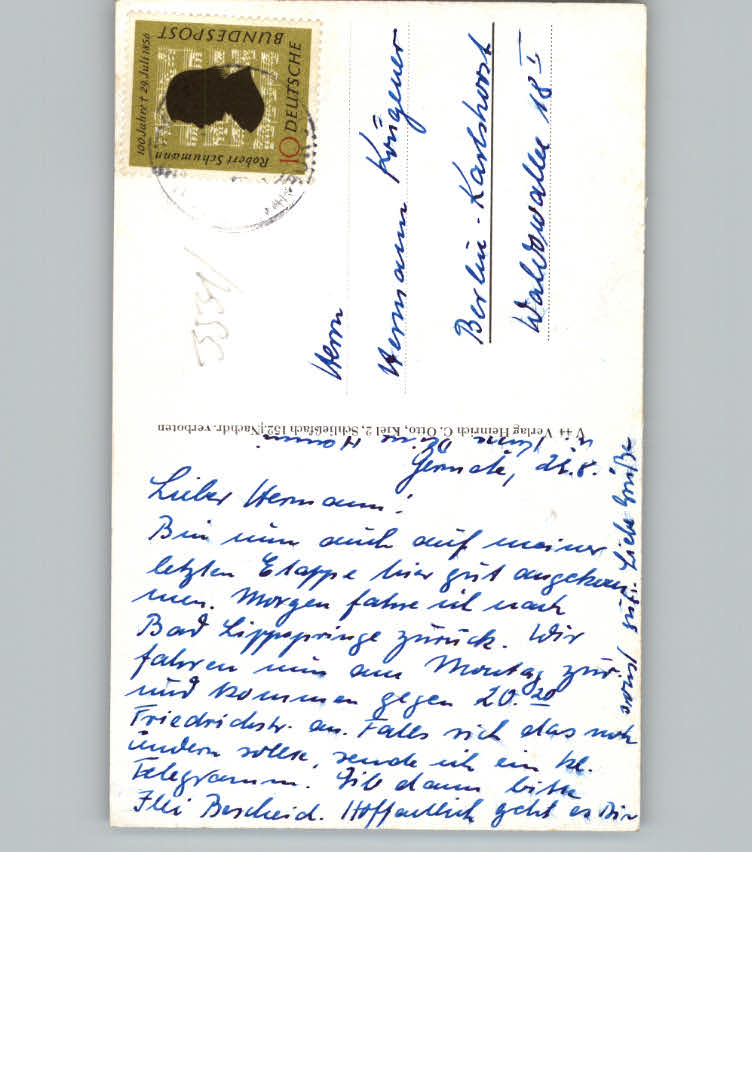 100 Jahre † 29. Juli 1856
DEUTSCHE
BUNDESPOST
10
Robert Schumann
Herrn
Hermann
Berlin-Karlshorst
Waldowallee 18 I
V 44 Verlag Heinrich C. Otto, Kiel 2, Schließfach 152. Nachdr. verboten
28.8.
Lieber Hermann!
Bin nun auch auf meiner
letzten Etappe hier gut angekom
men. Morgen fahre ich nach
Bad Lippspringe zurück. Wir
fahren nun am Montag zur.
und kommen gegen 20.20
Friedrichstr. an. Falls sich das noch
ändern sollte, sende ich ein kl.
Telegramm. Gib dann bitte
Bescheid. Hoffentlich geht es Dir
sonst gut. Liebe Grüße